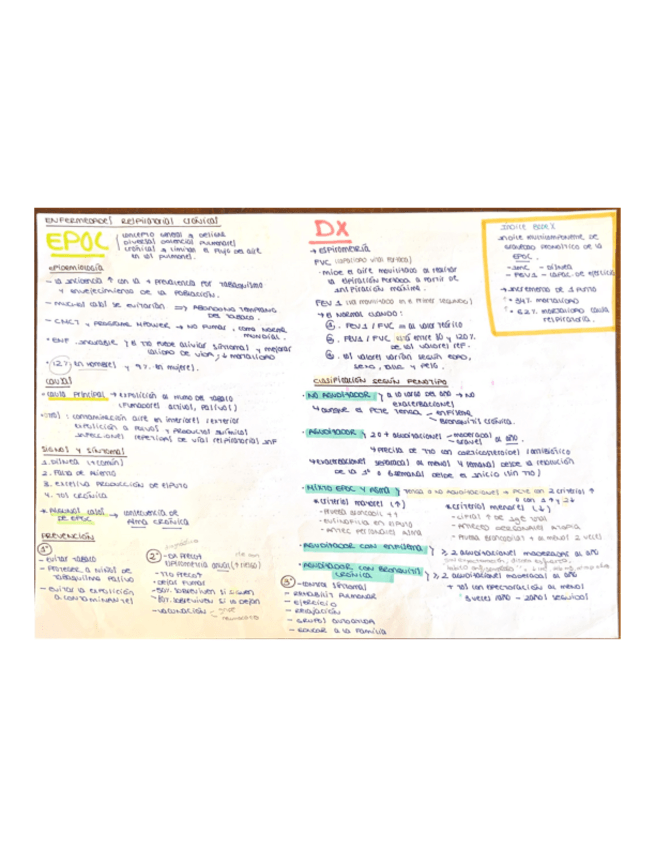 ENFERMEDADES RESPIRATORIAS CRÓNICAS
EPOC
concepto general → designar
diversas dolencias pulmonares
crónicas → limitan el flujo del aire
en los pulmones.
epidemiología
- La incidencia ↑ con la + prevalencia por tabaquismo
y envejecimiento de la población.
- Muchos casos se evitarían ⇒ abandono temprano
del tabaco.
- CMCT y programa MPOWER → no fumar, como norma
mundial.
- ENF incurable; el tto puede aliviar síntomas y mejorar
calidad de vida; ↓ mortalidad
- 12% en hombres y 9% en mujeres.
CAUSAS
- causa principal → exposición al humo de tabaco
(fumadores activos, pasivos)
- otras: contaminación aire en interiores / exterior
exposición a polvos y productos químicos
infecciones repetidas de vías respiratorias inf
SIGNOS Y SÍNTOMAS
1. Disnea (+ común)
2. Falta de aliento
3. excesiva producción de esputo
4. Tos crónica
* Algunos casos
de EPOC → consecuencia de
asma crónica
PREVENCIÓN
1ª
- evitar tabaco
- proteger a niños de
tabaquismo pasivo
- evitar la exposición
a contaminantes
2ª
- DX precoz
espirometría anual (+ riesgo)
- tto precoz
- dejar fumar
- 50% sobreviven si siguen
- 80% sobreviven si lo dejan
- vacunación
gripe
neumococo
DX
→ espirometría
FVC (capacidad vital forzada)
- mide el aire movilizado al realizar
la espiración forzada a partir de
inspiración máxima.
FEV 1 (vol movilizado en el primer segundo)
→ es normal cuando:
a. FEV1 / FVC = al valor teórico
b. FEV1 / FVC está entre 80 y 120%
de los valores ref.
c. los valores varían según edad,
sexo, talla y peso.
CLASIFICACIÓN SEGÚN FENOTIPO
- NO AGUDIZADOR; a lo largo del año → NO
exacerbaciones
↳ aunque el pcte tenga - enfisema
- Bronquitis crónica.
- AGUDIZADOR; 2 o + agudizaciones - moderadas
- graves al año.
↳ precisa de tto con corticosteroides / antibiótico
↳ exacerbaciones separadas al menos 4 semanas desde la resolución
de la 1ª o 6 semanas desde el inicio (sin tto)
- MIXTO EPOC y ASMA; tenga o no agudizaciones → pcte con 2 criterios ↑
ó con 1 ↑ y 2 ↓
* criterios mayores (↑)
- Prueba broncodil ++
- eusinofilia en esputo
- antec personales asma
* criterios menores (↓)
- cifras ↑ de IgE total
- anteced personales atopia
- prueba broncodilat + al menos 2 veces
- AGUDIZADOR CON ENFISEMA; ≥ 2 agudizaciones moderadas al año
- AGUDIZADOR CON BRONQUITIS
CRÓNICA; ≥ 2 agudizaciones moderadas al año
+ tos con expectoración al menos
3 meses / año - 2 años seguidos
3ª
- control síntomas
- rehabilit pulmonar
- ejercicio
- relajación
- grupos autoayuda
- educar a la familia
ÍNDICE BODEX
Índice multicomponente de
gravedad pronóstico de la
EPOC.
- IMC - disnea
- FEV1 - capac de ejercicio
→ incremento de 1 punto
↑ 34% mortalidad
↑ 62% mortalidad causa
respiratoria.